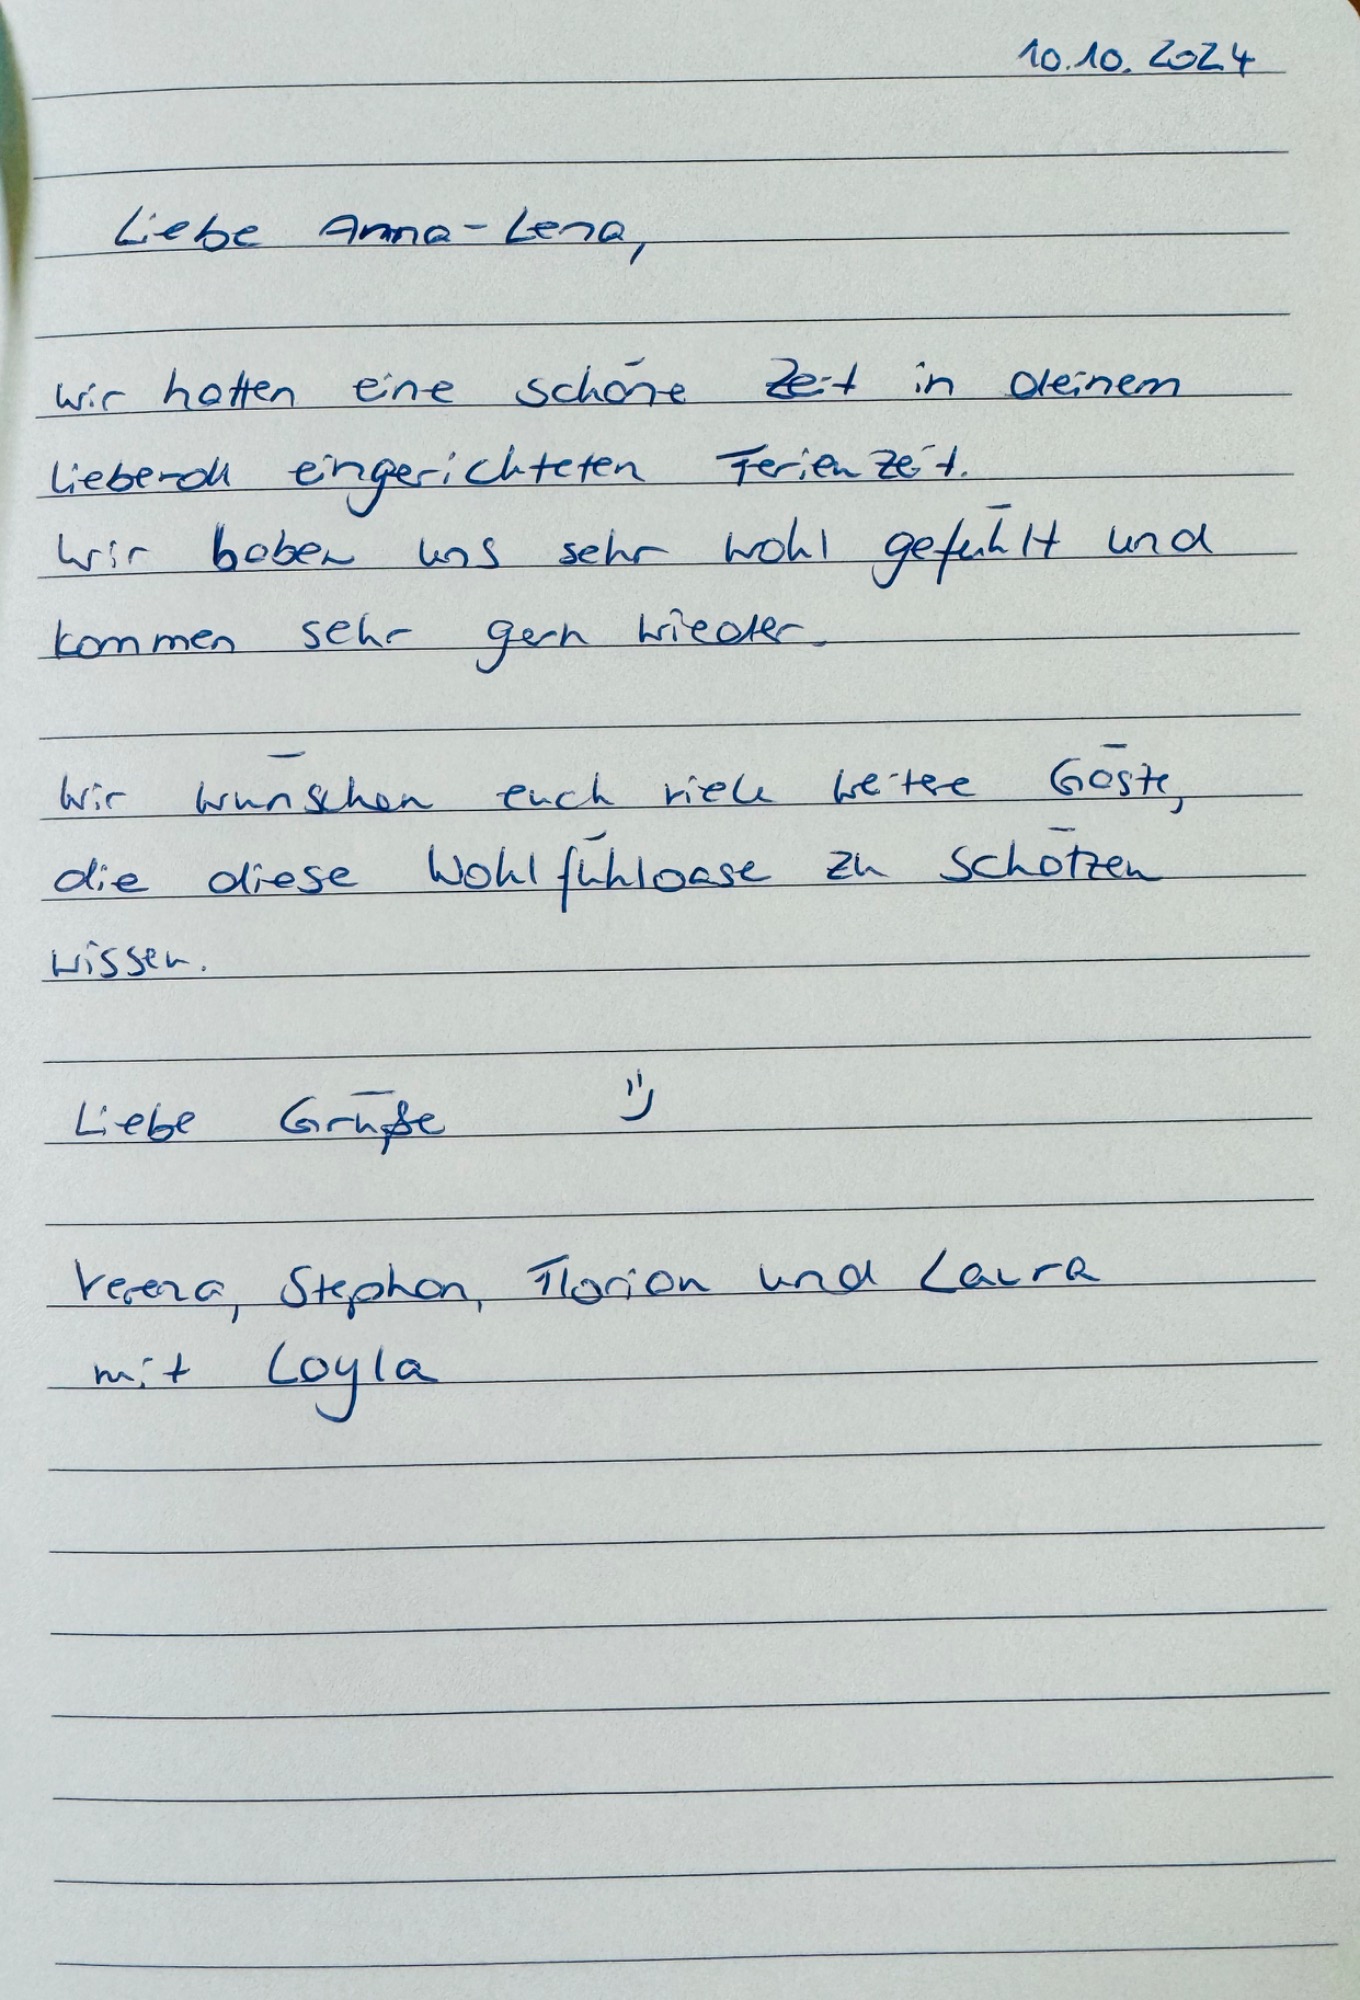 10.10.2024
Liebe Anna-Lena,
wir hatten eine schöne Zeit in deinem
liebevoll eingerichteten Ferienzeit.
Wir haben uns sehr wohl gefühlt und
kommen sehr gern wieder.
Wir wünschen euch viele weitere Gäste,
die diese Wohlfühloase zu schätzen
wissen.
Liebe Grüße
Verena, Stephan, Florian und Laura
mit Loyla